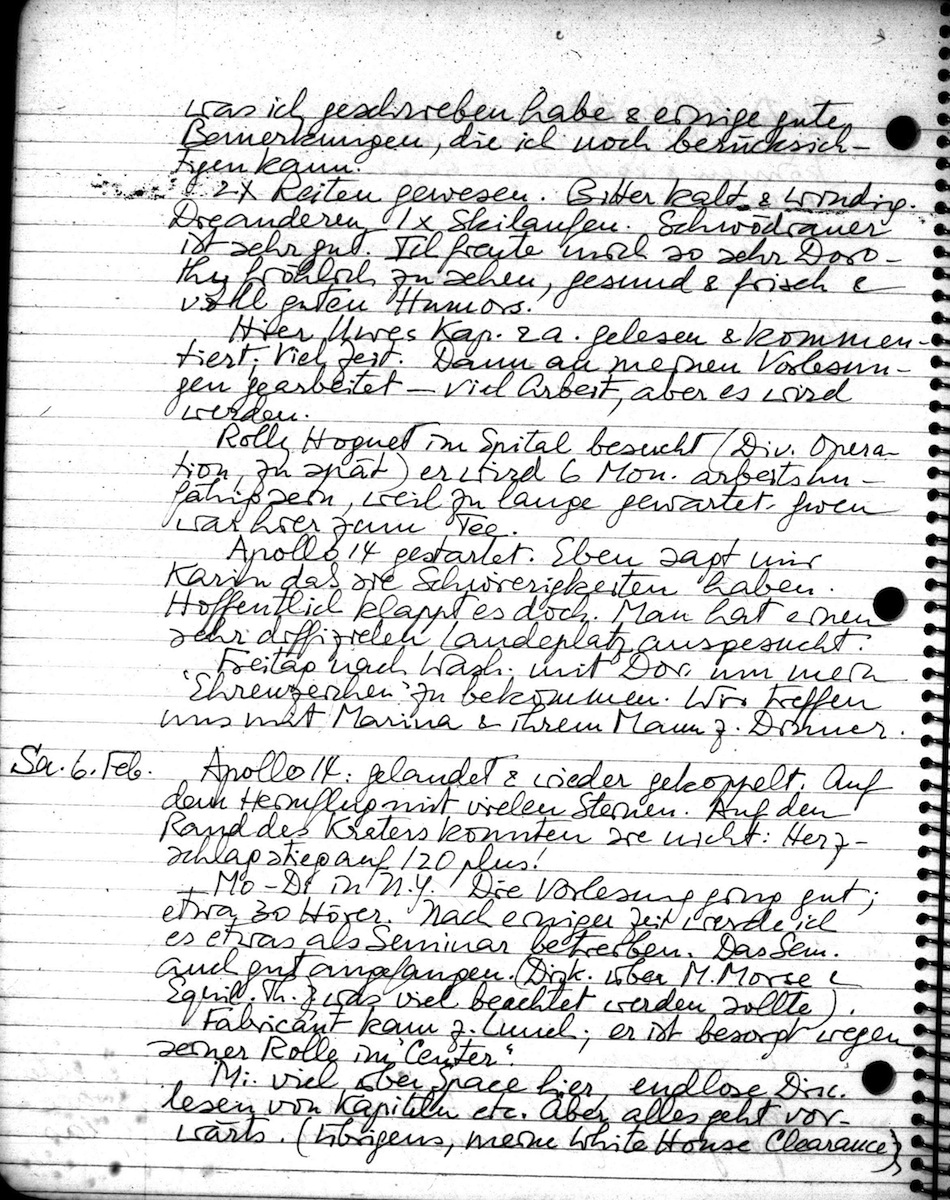 was ich geschrieben habe & einige gute
Bemerkungen, die ich noch berücksich-
tigen kann.
2x Reiten gewesen. Bitter kalt & windig.
Die anderen 1x Skilaufen.
ist sehr gut. Ich freute mich so sehr Doro-
thy fröhlich zu sehen, gesund & frisch &
voll guten Humors.
Hier Uwes Kap. 2a. gelesen & kommen-
tiert. Viel Zeit. Dann an meinen Vorlesun-
gen gearbeitet — viel Arbeit, aber es wird
werden.
Rolly Hoguet im Spital besucht (Div. Opera-
tion, zu spät) er wird 6 Mon. arbeitsun-
fähig sein, weil zu lange gewartet. Gwen
war hier zum Tee.
Apollo 14 gestartet. Eben sagt mir
Karin das sie Schwierigkeiten haben.
Hoffentlich klappt es doch. Man hat einen
sehr diffizielen Landeplatz ausgesucht.
Freitag nach Wash. mit Dor. um mein
"Ehrenzeichen" zu bekommen. Wir treffen
uns mit Marina & ihrem Mann z. Dinner.
Sa. 6. Feb. Apollo 14: gelandet & wieder gekoppelt. Auf
dem Heimflug mit vielen Steinen. Auf den
Rand des Kraters konnten sie nicht: Herz-
schlag stieg auf 120 plus!
Mo-Di in N.Y. Die Vorlesung ging gut;
etwa 30 Hörer. Nach einiger Zeit werde ich
es etwas als Seminar betreiben. Das Sem.
auch gut angefangen. (Disk. über M. Morse &
Equil. Th.; was viel beachtet werden sollte).
Fabricant kam z. Lunch; er ist besorgt wegen
seiner Rolle im "Center".
Mi. viel über Space hier, endlose Disc.
lesen von Kapiteln etc. Aber alles geht vor-
wärts. (Übrigens, meine White House Clearance)